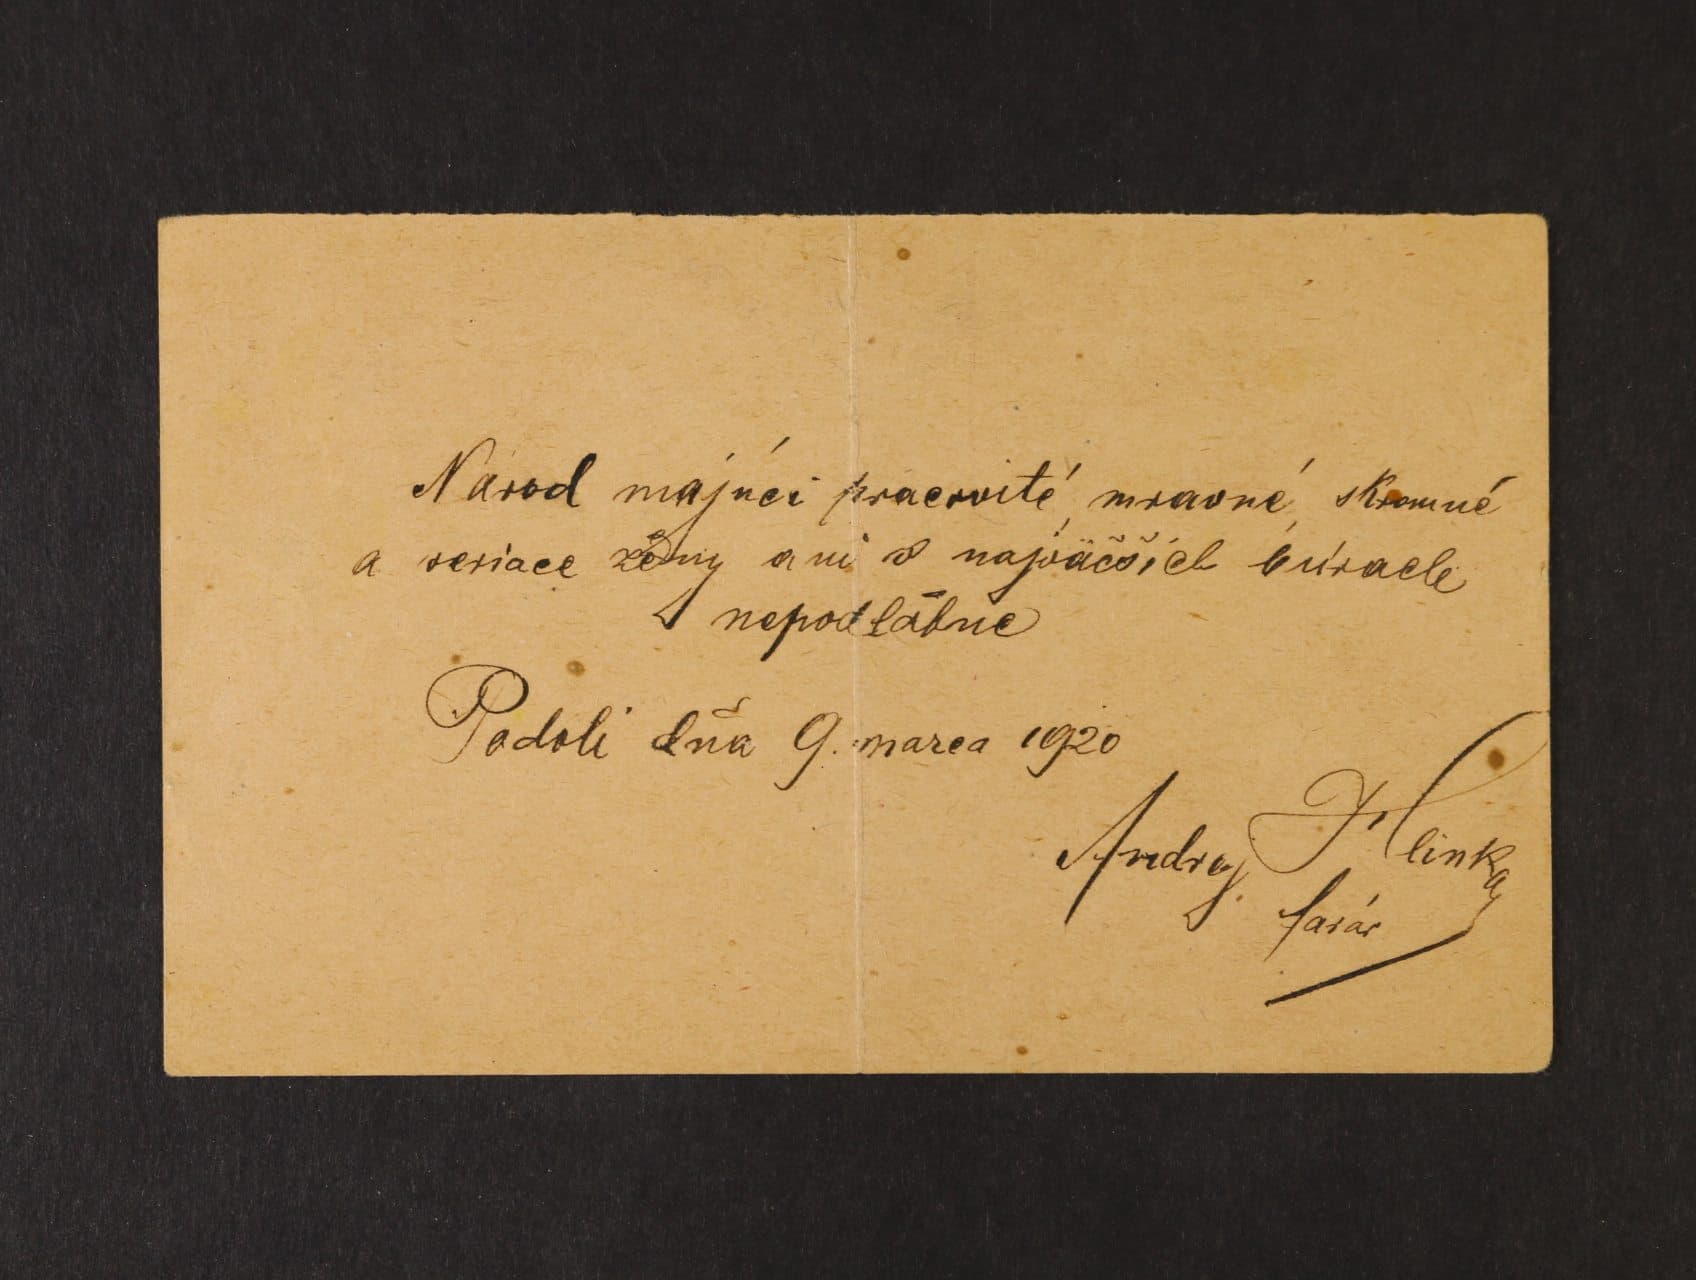 Národ majúci pracovité mravné skromné
a veriace ženy ani v najväčších búrach
nepodľahne
Podolí dňa 9. marca 1920
Andrej Hlinka
farár